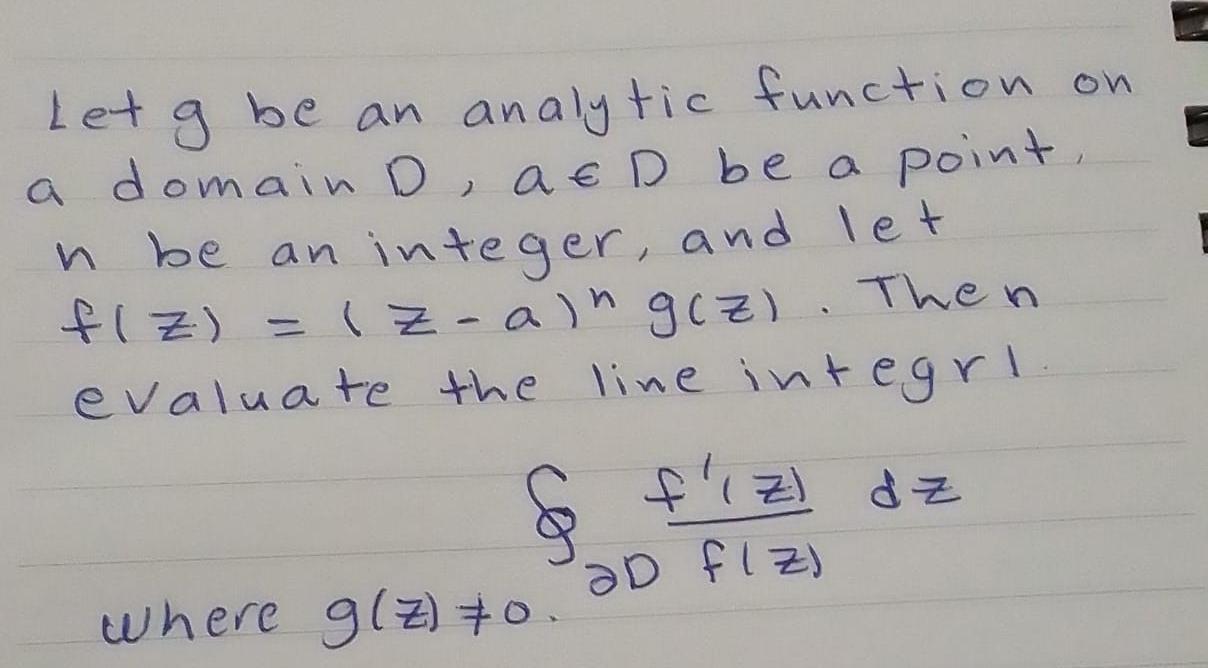 Let g be an analytic function on
a domain D, a ∈ D be a point,
n be an integer, and let
f(z) = (z-a)ⁿ g(z). Then
evaluate the line integrl.
∮_∂D f'(z)/f(z) dz
where g(z) ≠ 0.